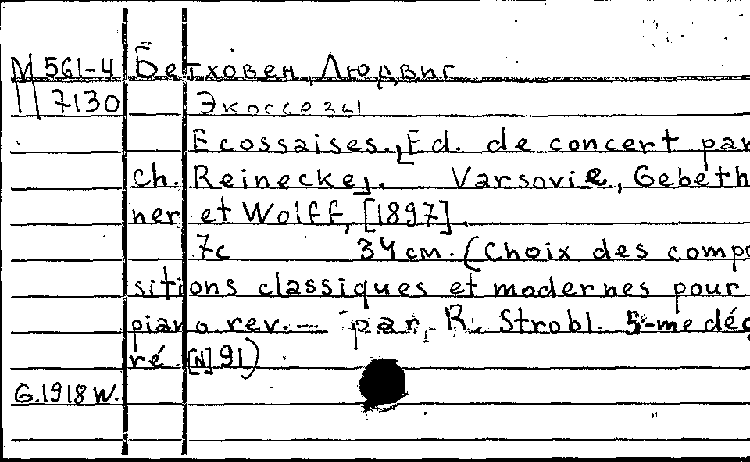 М 561-4 Бетховен, Людвиг
7130 Экоссезы
Ecossaises. [Ed. de concert par
ch. Reinecke]. Varsovie, Gebeth
ner et Wolff, [1897].
7c 34 см. (Choix des compo
sitions classiques et modernes pour
piano rev.— par R. Strobl. 5-me dég
ré [N] 91)
G.1918 W.